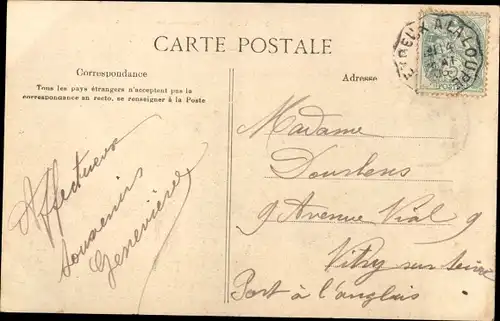 CARTE POSTALE
Correspondance
Tous les pays étrangers n'acceptent pas la
correspondance au recto, se renseigner à la Poste
Affectueux
souvenirs
Geneviève
Adresse
EVREUX A LA LOUPE
Madame
Dourlens
9 Avenue Vial 9
Vitry sur Seine
Port à l'anglais